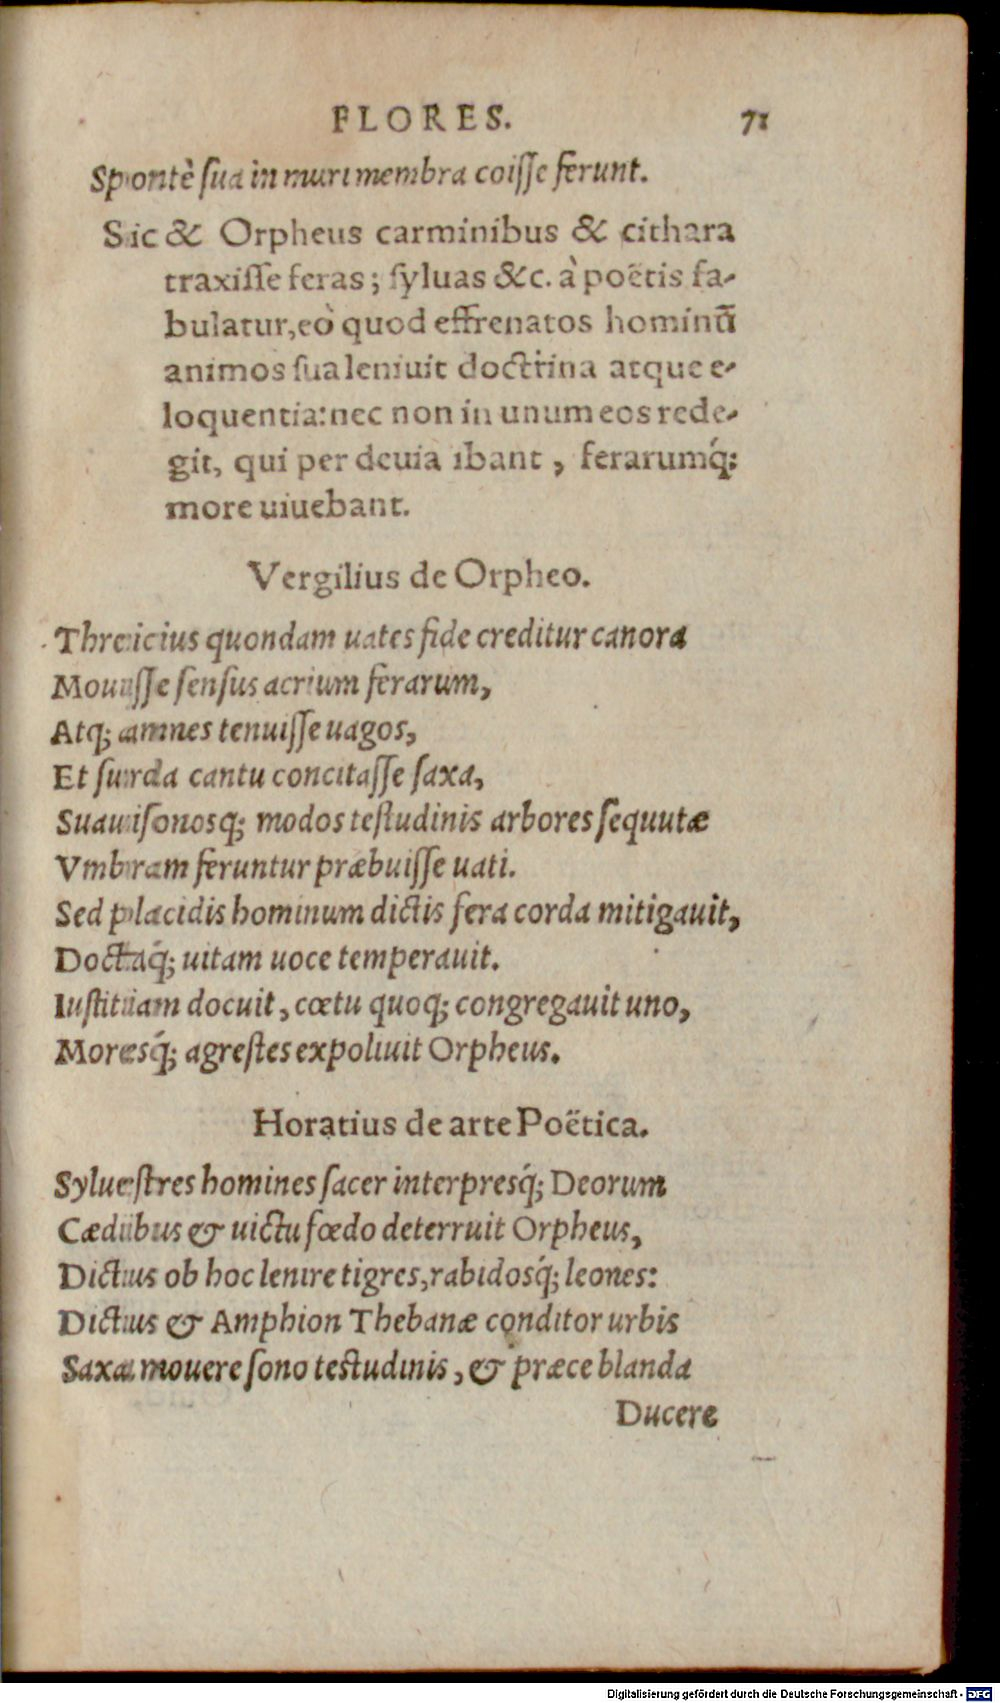 FLORES. 71
Spontè ſua in muri membra coiſſe ferunt.
Sic & Orpheus carminibus & cithara
traxiſſe feras; ſyluas &c. à poëtis fa-
bulatur, eò quod effrenatos hominū
animos ſua leniuit doctrina atque e-
loquentia: nec non in unum eos rede-
git, qui per deuia ibant, ferarumq́;
more uiuebant.
Vergilius de Orpheo.
Threicius quondam uates fide creditur canora
Mouiſſe ſenſus acrium ferarum,
Atq; amnes tenuiſſe uagos,
Et ſurda cantu concitaſſe ſaxa,
Suauiſonosq; modos teſtudinis arbores ſequutæ
Vmbram feruntur præbuiſſe uati.
Sed placidis hominum dictis fera corda mitigauit,
Doctaq́; uitam uoce temperauit.
Iuſtitiam docuit, cœtu quoq; congregauit uno,
Moresq́; agreſtes expoliuit Orpheus.
Horatius de arte Poëtica.
Sylueſtres homines ſacer interpresq́; Deorum
Cædibus & uictu fœdo deterruit Orpheus,
Dictus ob hoc lenire tigres, rabidosq́; leones:
Dictus & Amphion Thebanæ conditor urbis
Saxa mouere ſono teſtudinis, & præce blanda
Ducere
Digitalisierung gefördert durch die Deutsche Forschungsgemeinschaft - DFG